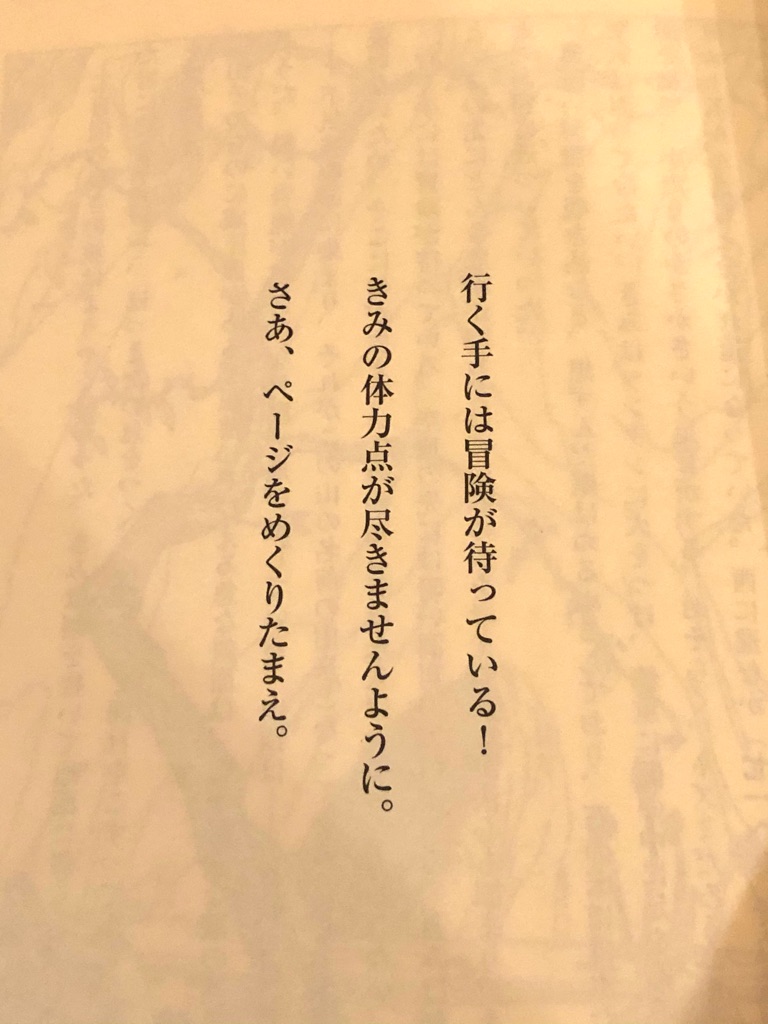 行く手には冒険が待っている！
きみの体力点が尽きませんように。
さあ、ページをめくりたまえ。